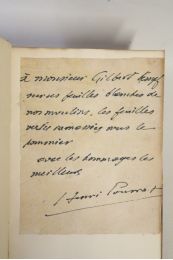 à monsieur Gilbert
sur ces feuilles blanches de
nos moulins, les feuilles
vertes ramassées sous le
pommier
avec les hommages les
meilleurs
Henri Pourrat